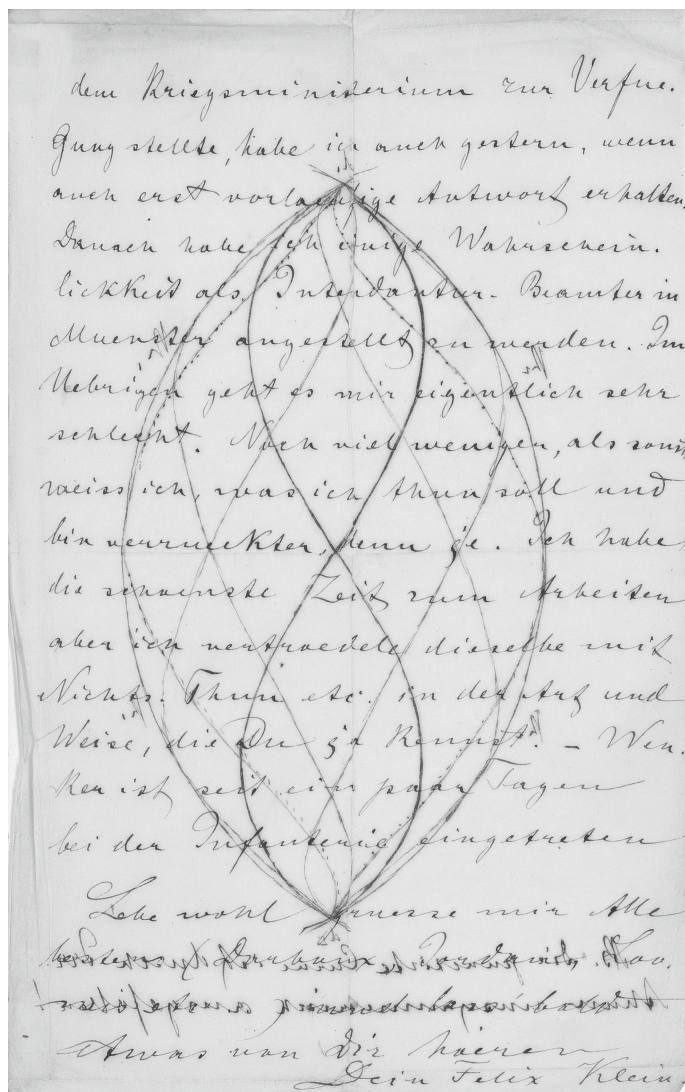 dem Kriegsministerium zur Verfue-
gung stellte, habe ich auch gestern, wenn
auch erst vorlaeufige Antwort erhalten.
Danach habe ich einige Wahrschein-
lickkeit als Intendantur-Beamter in
Muenster angestellt zu werden. Im
Uebrigen geht es mir eigentlich sehr
schlecht. Noch viel weniger, als sonst
weiss ich, was ich thun soll und
bin verrueckter, denn je. Ich habe
die schoenste Zeit zum Arbeiten
aber ich vertroedele dieselbe mit
Nichts-Thun etc. in der Art und
Weise, die Du ja kennst. – Wen-
ker ist seit ein paar Tagen
bei der Infanterie eingetreten
Lebe wohl gruesse mir Alle
bestens, Darboux Jordan
etwas von Dir hoeren
Dein Felix Klein.